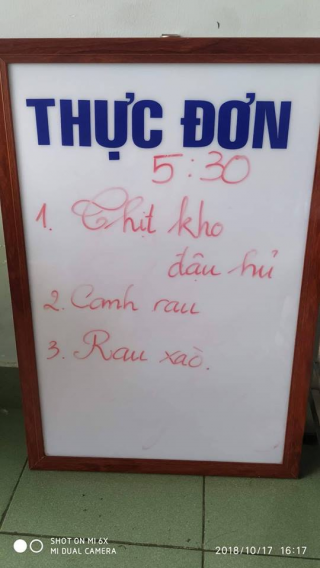 THỰC ĐƠN
5:30
1. Thịt kho
đậu hủ
2. Canh rau
3. Rau xào.
SHOT ON MI 6X
MI DUAL CAMERA
2018/10/17 16:17